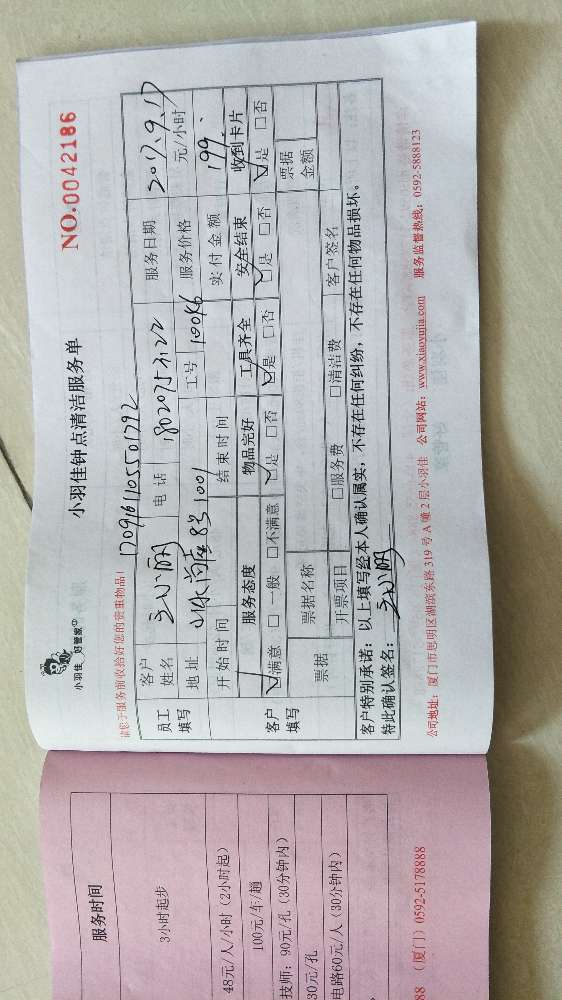 小羽佳 好管家
小羽佳钟点清洁服务单
NO.0042186
请您于服务前收拾好您的贵重物品!
1209161105501792
员工填写
客户姓名
电话
服务日期 2017.9.17
地址
1001
工号 10046
服务价格 元/小时
开始时间
结束时间
实付金额 199.
客户填写
服务态度 物品完好 工具齐全 安全结束 收到卡片
☑满意 □一般 □不满意 ☑是 □否 ☑是 □否 ☑是 □否 ☑是 □否
票据
票据名称
票据金额
开票项目 □服务费 □清洁费 客户签名
客户特别承诺:以上填写经本人确认属实,不存在任何纠纷,不存在任何物品损坏。
特此确认签名:
公司地址:厦门市思明区湖滨东路319号A幢2层小羽佳 公司网站:www.xiaoyujia.com 服务监督热线:0592-5888123
服务时间
3小时起步
48元/人/小时(2小时起)
100元/车/趟
技师:90元/孔(30分钟内)
30元/孔
电路60元/人(30分钟内)
88 (厦门)0592-5178888